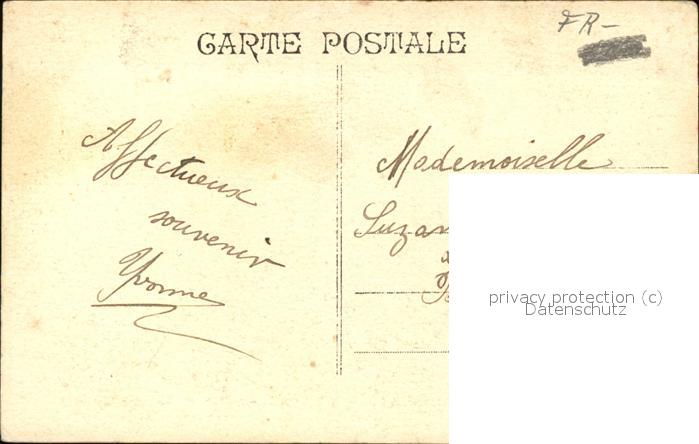 FR-
CARTE POSTALE
Affectueux
souvenir
Yvonne
Mademoiselle
privacy protection (c)
Datenschutz